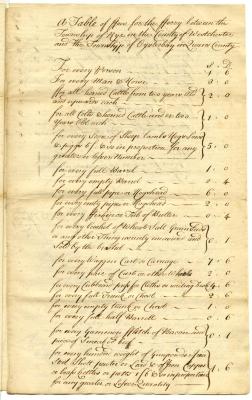 A Table of ffare for the fferry between the
Township of Rye in the County of Westchester
and the Township of Oysterbay in Queens County
S: D
For every Person 1 : 6
For every Man & Horse 3 : 0
for all horned Cattle from two years old
and upwards each 2 : 0
for all Colts & horned Cattle under two
Years old each
for every Score of Sheep Lambs Hogs
& piggs & so in proportion for any
greater or lesser Number 5 : 0
for every full Barrel 1 : 0
for every empty Barrel 0 : 4
for every full pipe or Hogshead 6 : 0
for every empty pipe or Hogshead 2 : 0
for every 0 : 4
for every bushel of Wheat Salt Grain
or any other thing usually measured and
Sold by the bushel 0 : 1
for every Waggon Cart or Carriage 7 : 6
for every pair of Cart or other Wheels 2 : 0
for every Cubboard press for Cloths or writing Desk
for every full Trunk or Chest 2 : 6
for every empty Trunk or Chest 1 : 6
for every full half Barrel 0 : 6
for every Gammon fflitch of Bacon or
piece of Smoaked Beef 0 : 1
for every hundred weight of Gunpowder
Shott pewter or Lead & of Iron Copper
or brass Kettles or potts 1/6 & so in proportion
for any greater or Lesser Quantity